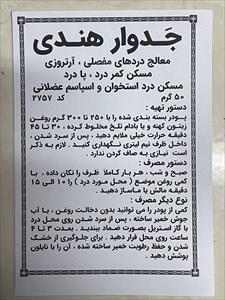 جَدوار هندی
معالج دردهای مفصلی ، آرتروزی
مسکن کمر درد ، پا درد
مسکن درد استخوان و اسپاسم عضلانی
۵۰ گرم کد ۲۷۵۷
دستور تهیه :
پودر بسته بندی شده را با ۲۵۰ تا ۳۰۰ گرم روغن
زیتون کهنه و یا بادام تلخ مخلوط کرده ، ۳۰ تا ۴۵
دقیقه حرارت خیلی ملایم دهید ، پس از سرد شدن ،
داخل ظرف نیم لیتری نگهداری کنید . لازم به ذکر
است نیازی به صاف کردن ندارد .
دستور مصرف :
صبح و شب ، هر بار کاملاً ظرف را تکان داده ، با
کمی روغن موضع ( محل مورد درد ) را ۱۰ الی ۱۵
دقیقه مالش یا ماساژ دهید .
نوع دیگر مصرف :
کمی از پودر را می توانید بدون دخالت روغن ، با آب
جوش خمیر ساخته ، پس از سرد شدن روی محل درد
با گاز استریل بصورت ضماد ببندید . بمدت ۳ تا ۴
ساعت روی محل قرار دهید . برای جلوگیری از خشک
شدن و حفظ رطوبت خمیر ساخته شده ، آن را با نایلون
پوشش دهید .